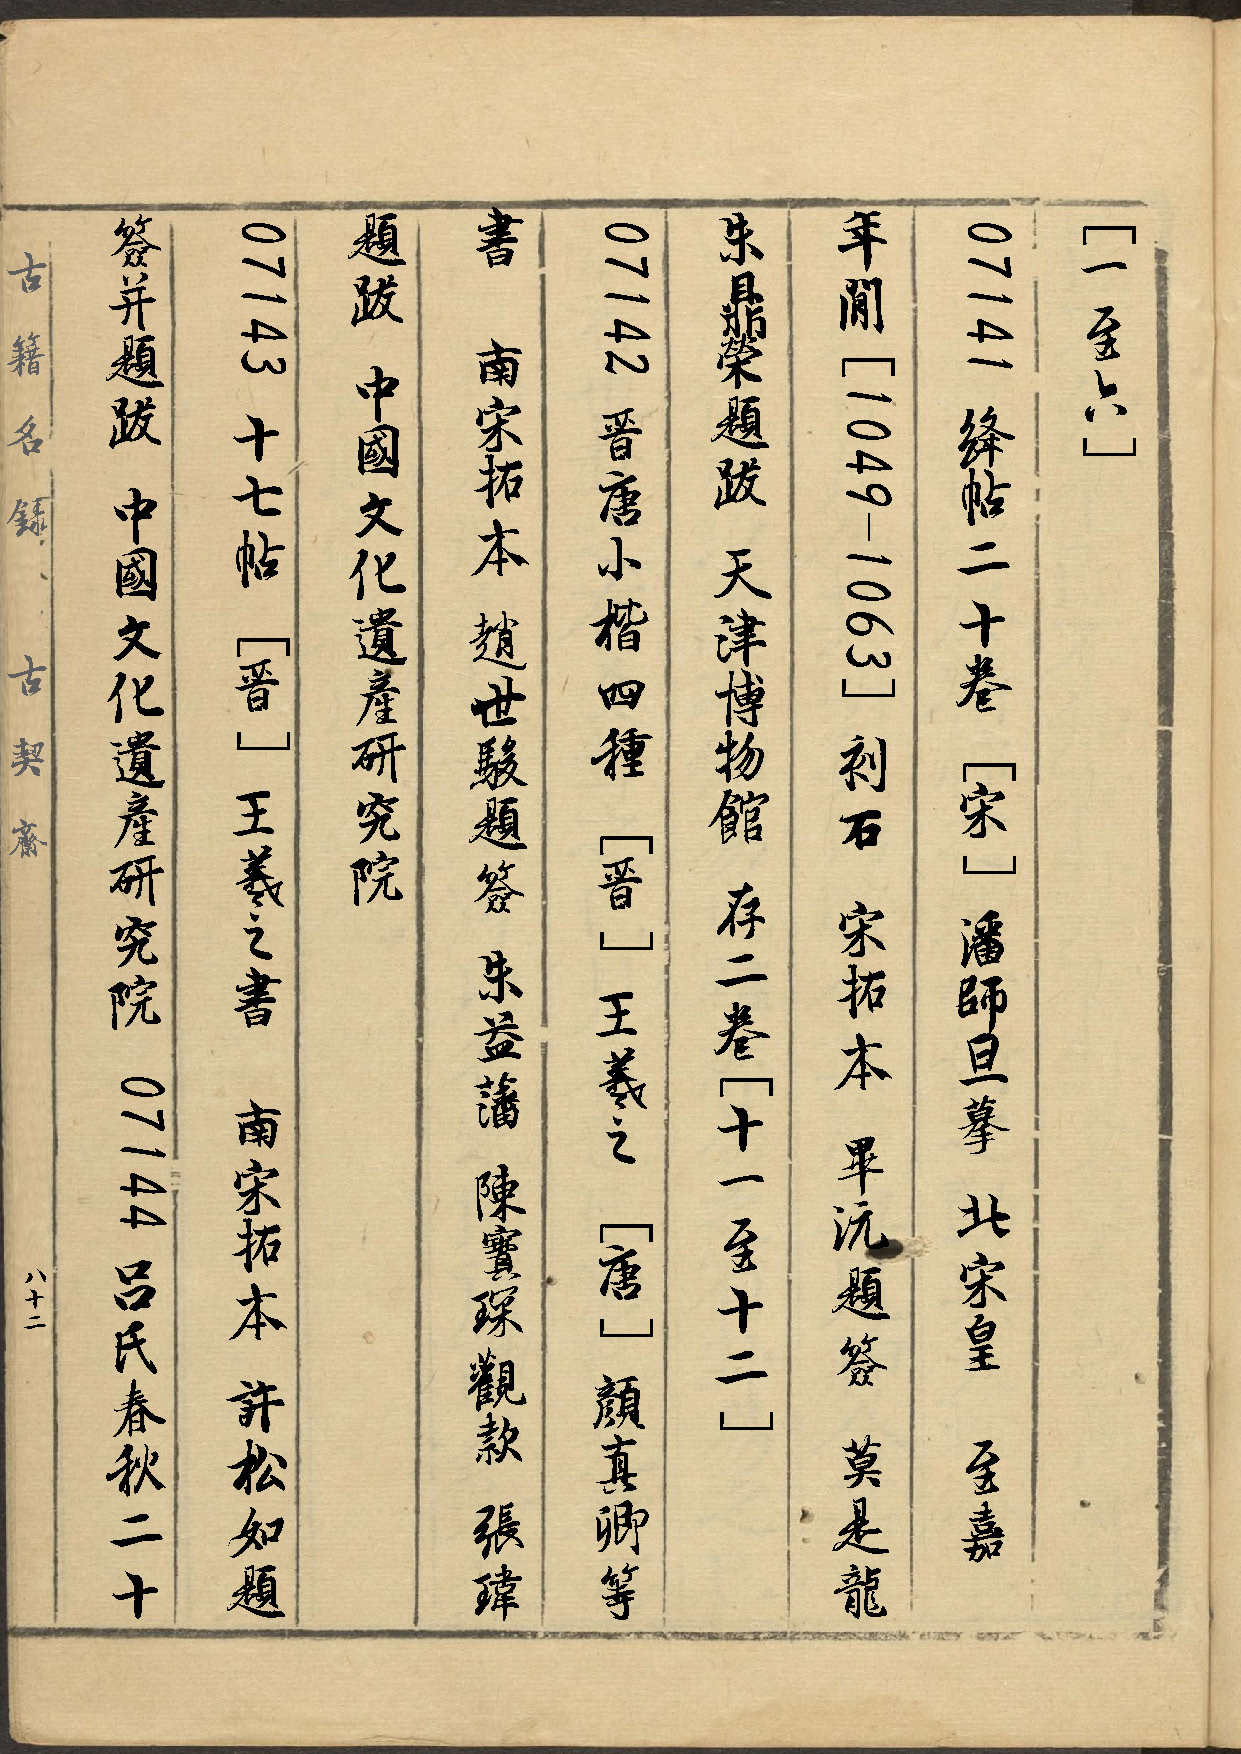 [一至六]
07141 絳帖二十卷 [宋]潘師旦摹 北宋皇 至嘉
年閒[1049-1063]刻石 宋拓本 畢沅題簽 莫是龍
朱鼎榮題跋 天津博物館 存二卷[十一至十二]
07142 晉唐小楷四種 [晉]王羲之 [唐]顏真卿等
書 南宋拓本 趙世駿題簽 朱益藩 陳寶琛觀款 張瑋
題跋 中國文化遺產研究院
07143 十七帖 [晉]王羲之書 南宋拓本 許松如題
簽并題跋 中國文化遺產研究院 07144 呂氏春秋二十
古籍名錄 古契齋
八十二